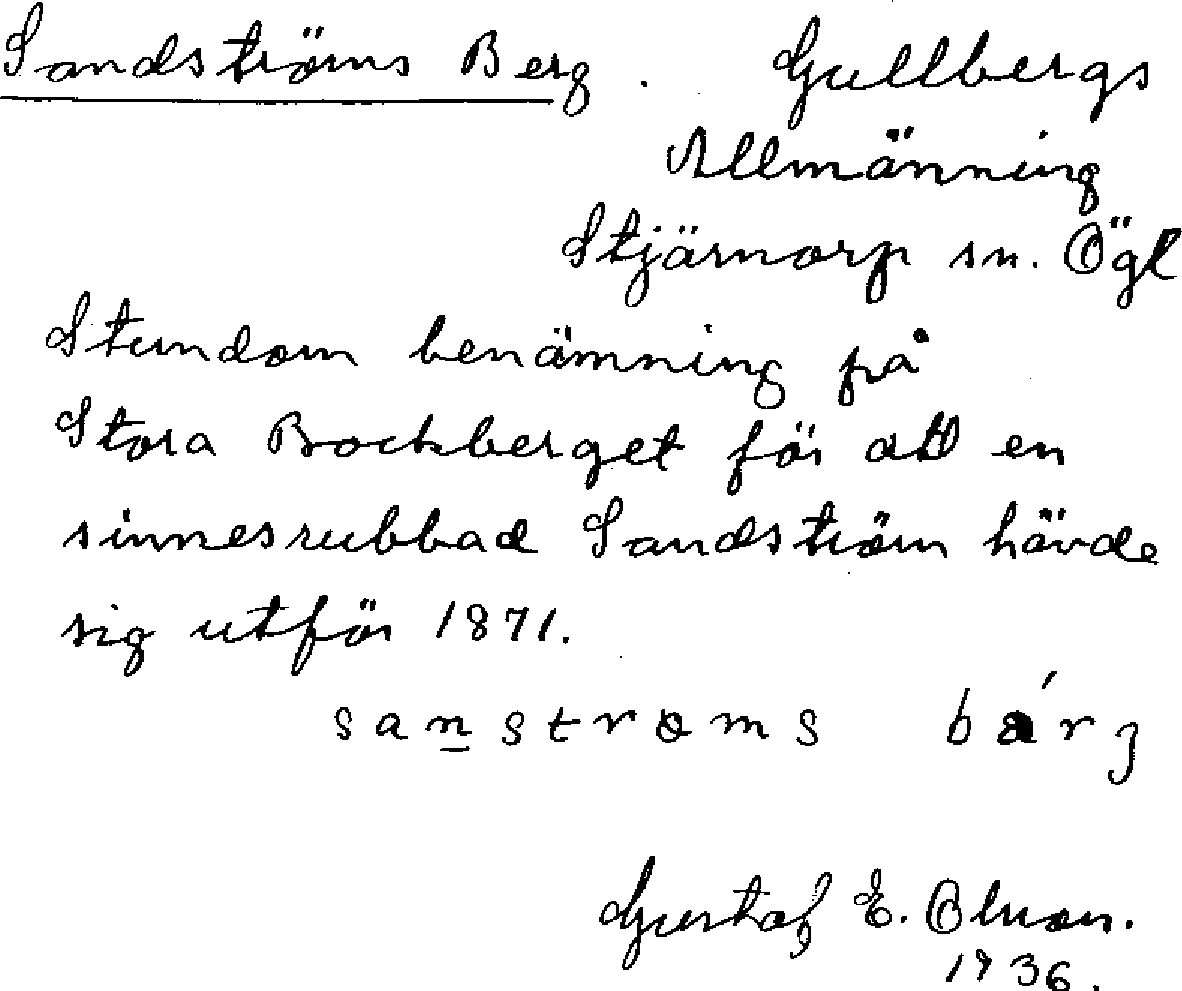 Sandströms Berg. Gullbergs
Allmänning
Stjärnorp sn. Ögl
Stundom benämning på
Stora Bockberget för att en
sinnesrubbad Sandström hävde
sig utför 1871.
sanstrɵms bárj
Gustaf E. Olsson.
1936.